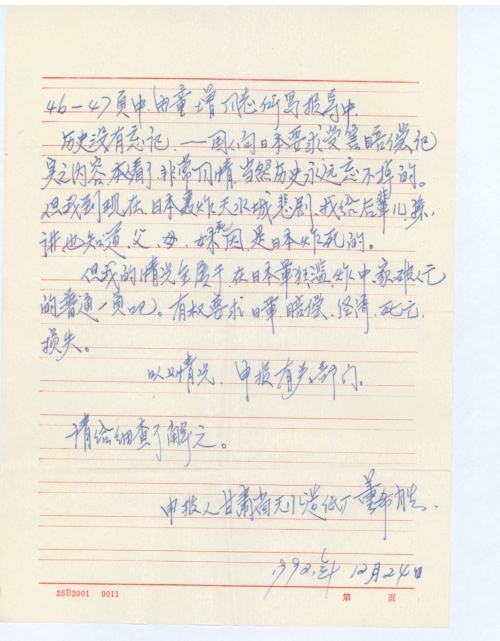 46-47页中,由童增同志所写报导中,
历史没有忘记,——国人向日本要求受害赔偿纪
实之内容,本人看了非常同情,当然历史永远忘不掉的。
但我到现在,日本轰炸天水城悲剧,我给后辈儿、孙、
讲,也知道,父、母、妹死因,是日本炸死的。
但我的情况全属于,在日本军狂滥炸中,家破人亡
的普通一员吧。有权要求日军,赔偿、经济、死亡、
损失。
以此情况,申报有关部门。
请给细查了解之。
申报人甘肃省天水造纸厂董
1992.年12月24日
25B2001 9011
第 页